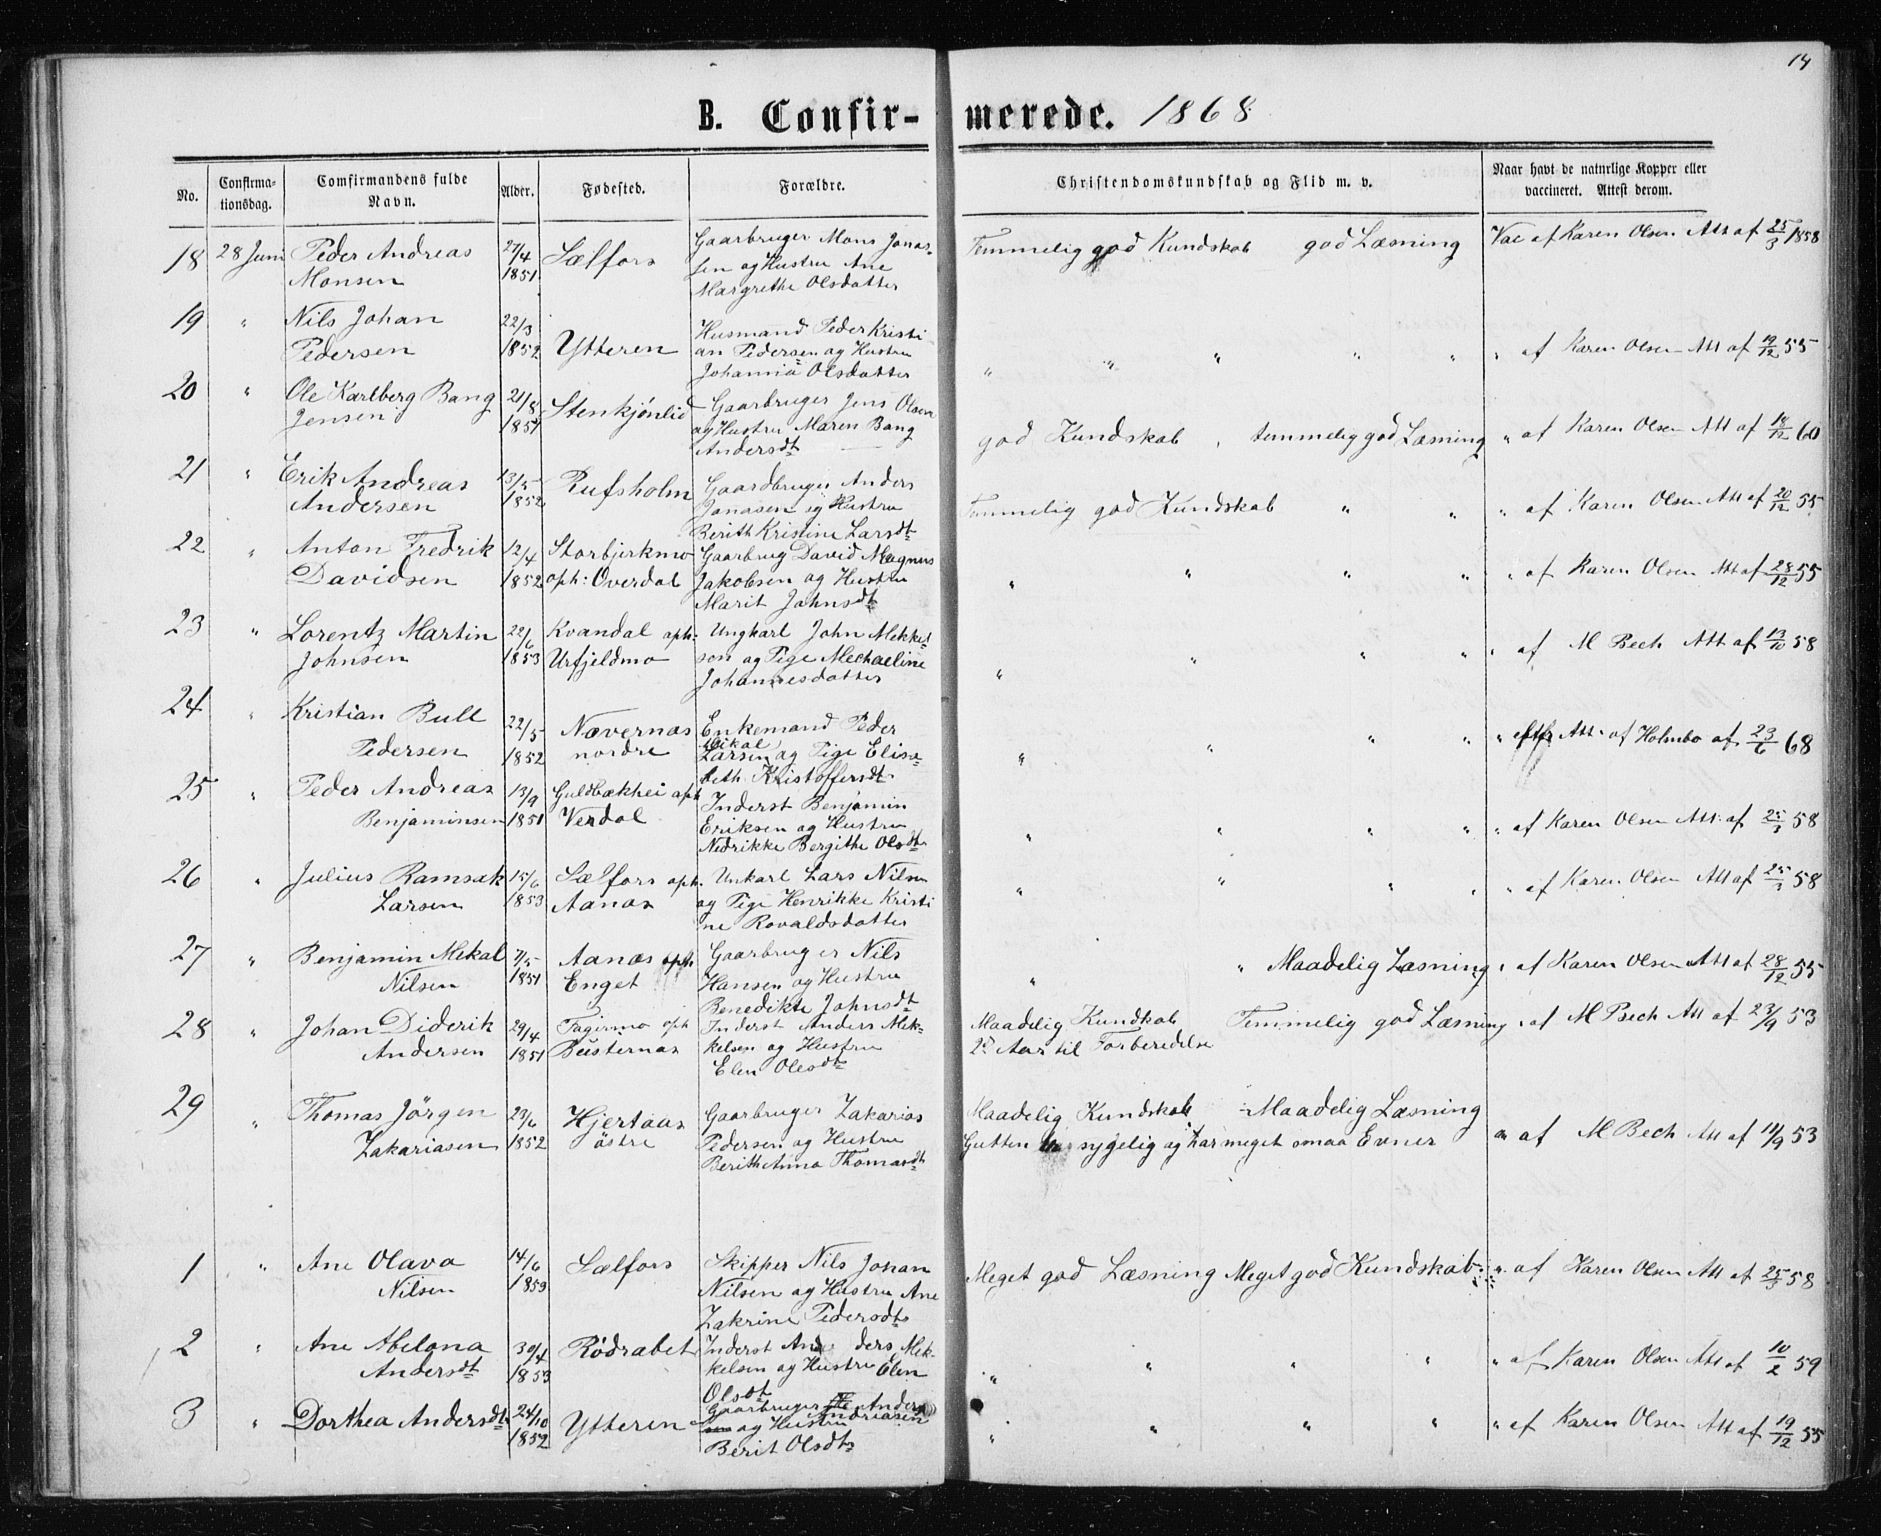 14
B. Confir- merede. 1868.
No. Confirma-tionsdag. Comfirmandens fulde Navn. Alder. Fødested. Forældre. Christendomskundskab og Flid m. v. Naar havt de naturlige Kopper eller vaccineret. Attest derom.
18 28 Juni Peder Andreas 27/4 Sælfors Gaarbruger Mons Jonas- Temmelig god Kundskab god Læsning Vac af Karen Olsen Att af 25/3 1858
Monsen 1851 sen og Hustru Ane
Margrethe Olsdatter
19 " Nils Johan 22/3 Ytteren Husmand Peder Kristi
Pedersen 1852 an Pedersen og Hustru " " " " " " af Karen Olsen Att af 19/12 55
Johanna Olsdatter
20 " Ole Karlberg Bang 21/8 Stenkjønlid Gaarbruger Jens Olsen
Jensen 1851 og Hustru Maren Bang god Kundskab, temmelig god Læsning " af Karen Olsen Att af 18/12 60
Andersdt
21 " Erik Andreas 13/5 Rufsholm Gaardbruger Anders
Andersen 1852 Jonasen og Hustru Temmelig god Kundskab " " " af Karen Olsen Att af 20/12 55
Berith Kristine Larsdt
22 " Anton Fredrik 12/4 Storbjerkmo Gaarbrug David Magnus
Davidsen 1852 oph: Overdal Jakobsen og Hustru " " " " " af Karen Olsen Att af 28/12 55
Marit Johnsdt
23 " Lorentz Martin 22/6 Kvandal oph: Ungkarl John Mikkel
Johnsen 1853 Urfjeldmo son og Pige Mechaeline " " " " " af M Bech Att af 13/10 58
Johannesdatter
24 " Kristian Bull 22/5 Nævernæs Enkemand Peder
Mikal
Pedersen 1852 nordre Larsen og Pige Elisa- " " " " " Att af Holmbo af 23/6 68
beth Kristoffersdt
25 " Peder Andreas 13/9 Guldbækhei oph Inderst Benjamin
Benjaminsen 1851 Verdal Eriksen og Hustru " " " " " af Karen Olsen Att. af 25/3 58
Nedrikke Bergithe Olsdt
26 " Julius Ramsak 15/6 Sælfors oph. Unkarl Lars Nilsen " " " " " af Karen Olsen Att af 25/3 58
Larsen 1853 Aanæs og Pige Henrikke Kristi
ne Rovaldsdatter
27 " Benjamin Mekal 7/5 Aanæs oph Gaarbruger Nils " " Maadelig Læsning " af Karen Olsen Att af 28/12 55
Nilsen 1851 Enget Hansen og Hustru
Benedikte Johnsdt
28 " Johan Diderik 29/4 Fagirmo oph Inderst Anders Mik- Maadelig Kundskab Temmelig god Læsning " af M Bech Att af 23/9 53
Andersen 1851 Busternæs kelsen og Hustru 2det Aar til Forberedelse
Elen Olesdt
29 " Thomas Jörgen 23/6 Hjertaas Gaarbruger Zakarias Maadelig Kundskab - Maadelig Læsning
Zakariasen 1852 östre Pedersen og Hustru Gutten er sygelig og har meget smaa Evner " af M Bech Att af 11/9 53
Berith Anna Thomasdt
1 " Ane Olava 14/6 Sælfors Skipper Nils Johan Meget god Læsning Meget god Kundskab " af Karen Olsen Att af 25/3 58
Nilsen 1853 Nilsen og Hustru Ane
Zakrine Pedersdt
2 " Ane Abelona 30/4 Rödrabet Inderst Anders Mik-
Andersdt 1853 kelsen og Hustru Elen " " " " " af Karen Olsen Att af 10/2 59
Olsdt
3 " Dorthea Andersdt 24/10 Ytteren Gaarbruger Anders
Andriasen
1852 og Hustru " " " " " af Karen Olsen Att af 19/12 55
Berit Olsdt